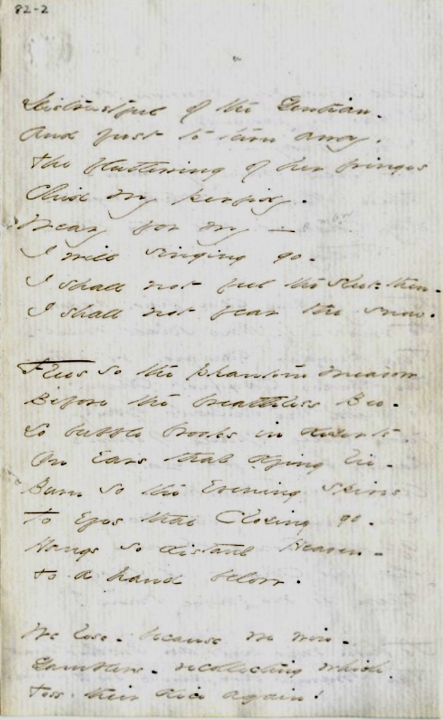 82-2
Distrustful of the Gentian.
And just to turn away,
The fluttering of her fringes
Chid my perfidy.
Weary for my —
I will singing go.
I shall not feel the sleet - then.
I shall not fear the snow.
Flees so the phantom meadow
Before the breathless Bee.
So bubble brooks in deserts
On Ears that dying lie.
Burn so the Evening Spires
To Eyes that Closing go.
Hangs so distant Heaven -
To a hand below.
We lose - because we win -
Gamblers - recollecting which -
Toss their dice again!